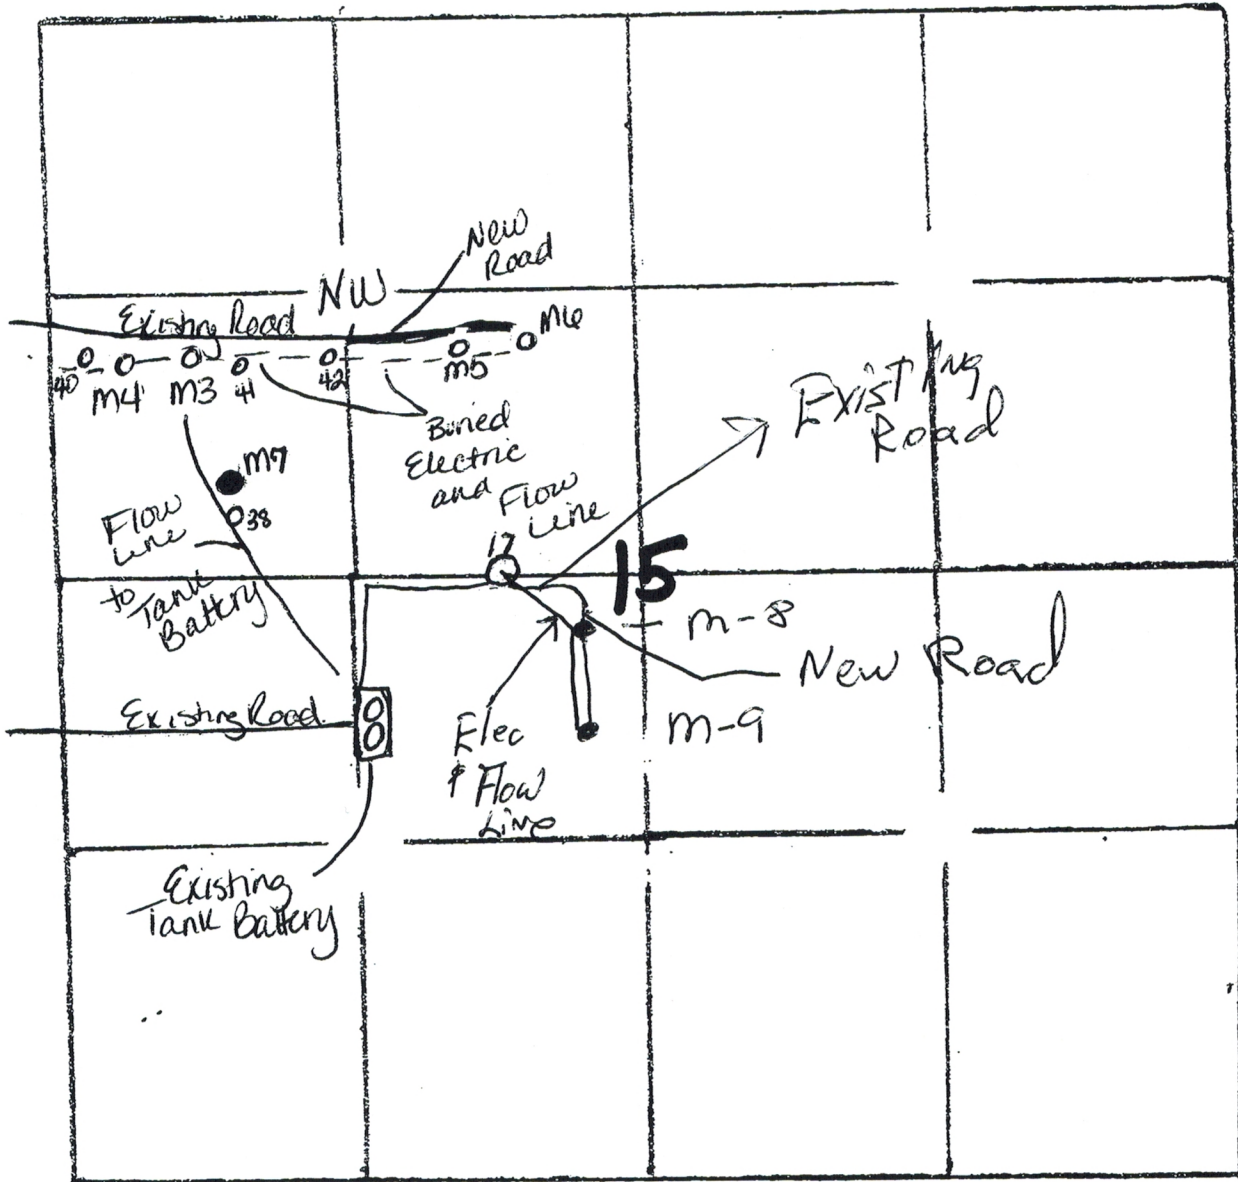 New
Road
NW
Existing Road
M6
40
M4
M3
41
42
M5
Buried
Electric
and
Flow
Line
Existing
Road
M7
38
Flow
Line
to
Tank
Battery
17
15
M-8
New Road
Existing Road
M-9
Elec
& Flow
Line
Existing
Tank Battery